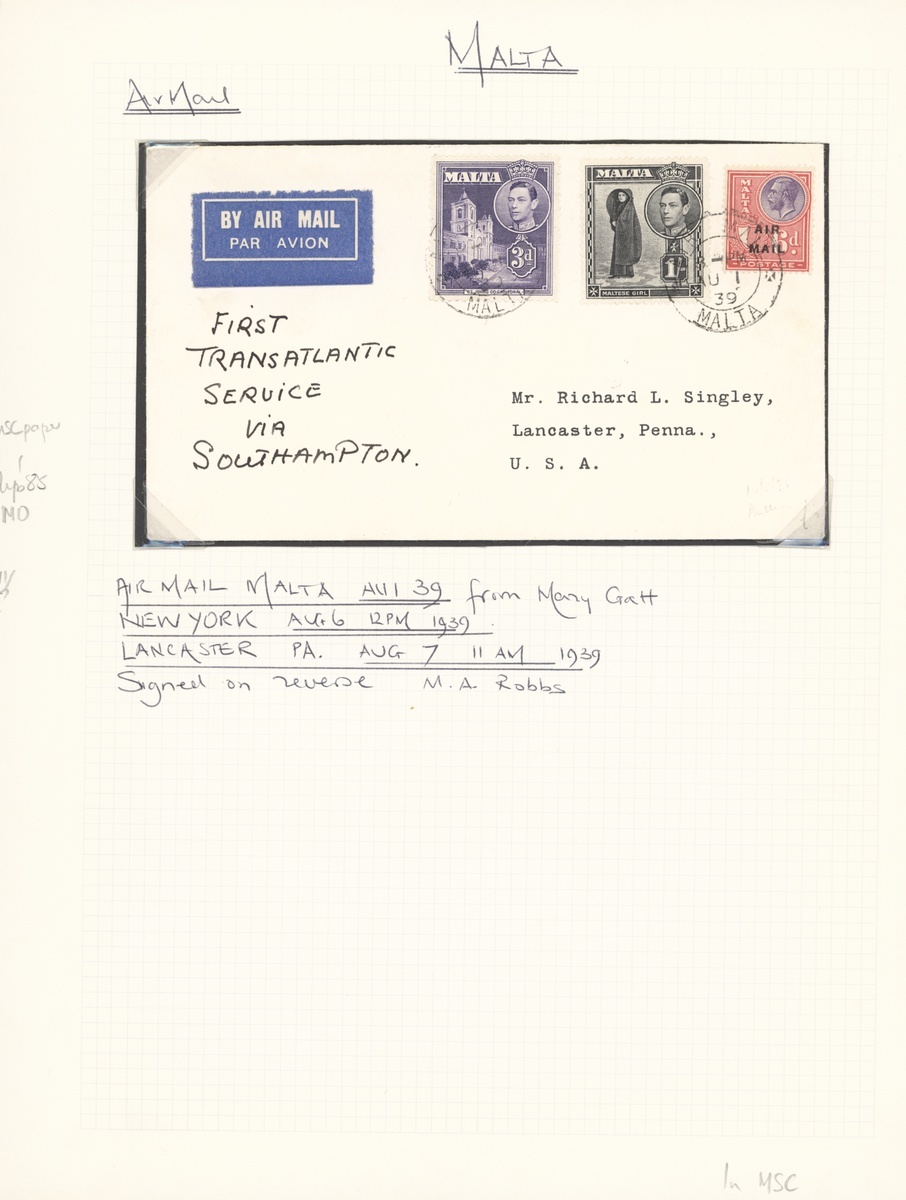 MALTA
Air Mail
BY AIR MAIL
PAR AVION
MALTA
3d
MALTA
MALTA
1/-
MALTESE GIRL
MALTA
AIR
MAIL
POSTAGE
PM
AU 1
39
MALTA
FIRST
TRANSATLANTIC
SERVICE
VIA
SOUTHAMPTON.
Mr. Richard L. Singley,
Lancaster, Penna.,
U. S. A.
AIR MAIL MALTA AU 1 39 from Mary Gatt
NEW YORK AUG 6 12PM 1939.
LANCASTER PA. AUG 7 11 AM 1939
Signed on reverse M.A. Robbs
MO
In MSC